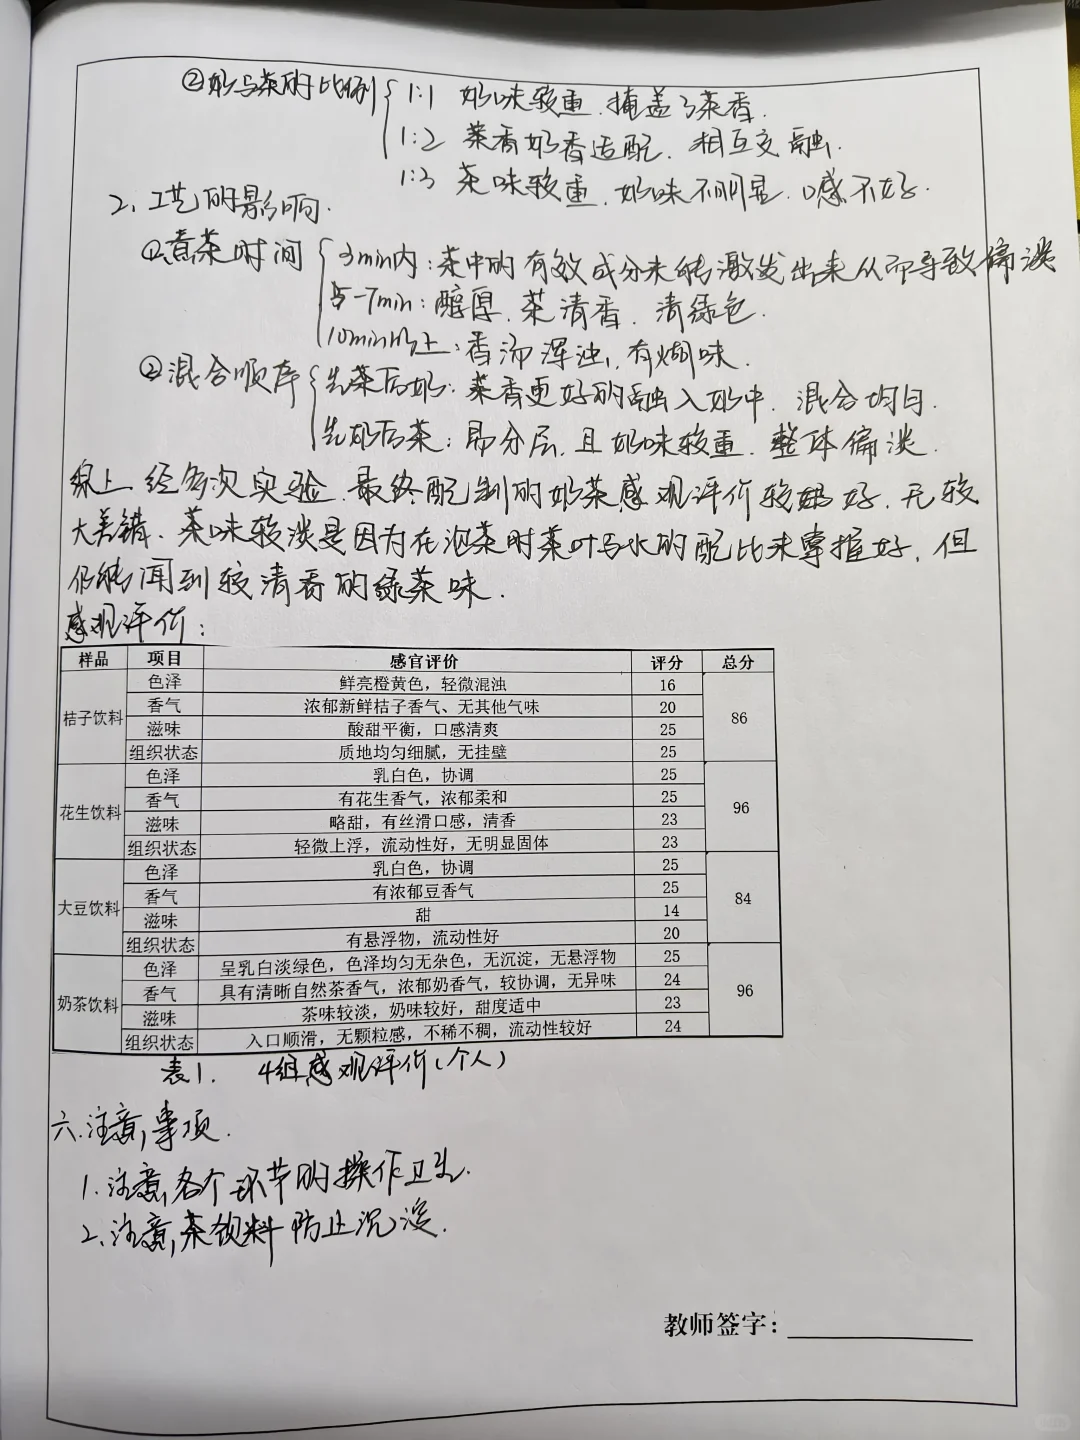 ②奶与茶的比例 1:1 奶味较重,掩盖了茶香.
1:2 茶香奶香适配,相互交融.
1:3 茶味较重,奶味不明显,口感不好.
2、工艺的影响.
①煮茶时间 3min内:茶中的有效成分未能激发出来从而导致偏淡
5-7min:醇厚,茶清香,清绿色.
10min以上:香汤浑浊,有糊味.
②混合顺序 先茶后奶:茶香更好的融入奶中,混合均匀.
先奶后茶:易分层,且奶味较重,整体偏淡.
综上,经多次实验,最终配制的奶茶感观评价较好,无较
大差错.茶味较淡是因为在泡茶时茶叶与水的配比未掌握好,但
仍能闻到较清香的绿茶味.
感观评价:
样品 项目 感官评价 评分 总分
桔子饮料 色泽 鲜亮橙黄色,轻微混浊 16 86
香气 浓郁新鲜桔子香气、无其他气味 20
滋味 酸甜平衡,口感清爽 25
组织状态 质地均匀细腻,无挂壁 25
花生饮料 色泽 乳白色,协调 25 96
香气 有花生香气,浓郁柔和 25
滋味 略甜,有丝滑口感,清香 23
组织状态 轻微上浮,流动性好,无明显固体 23
大豆饮料 色泽 乳白色,协调 25 84
香气 有浓郁豆香气 25
滋味 甜 14
组织状态 有悬浮物,流动性好 20
奶茶饮料 色泽 呈乳白淡绿色,色泽均匀无杂色,无沉淀,无悬浮物 25 96
香气 具有清晰自然茶香气,浓郁奶香气,较协调,无异味 24
滋味 茶味较淡,奶味较好,甜度适中 23
组织状态 入口顺滑,无颗粒感,不稀不稠,流动性较好 24
表1. 4组感观评价(个人)
六.注意事项.
1.注意各个环节的操作卫生.
2.注意茶饮料防止沉淀.
教师签字: